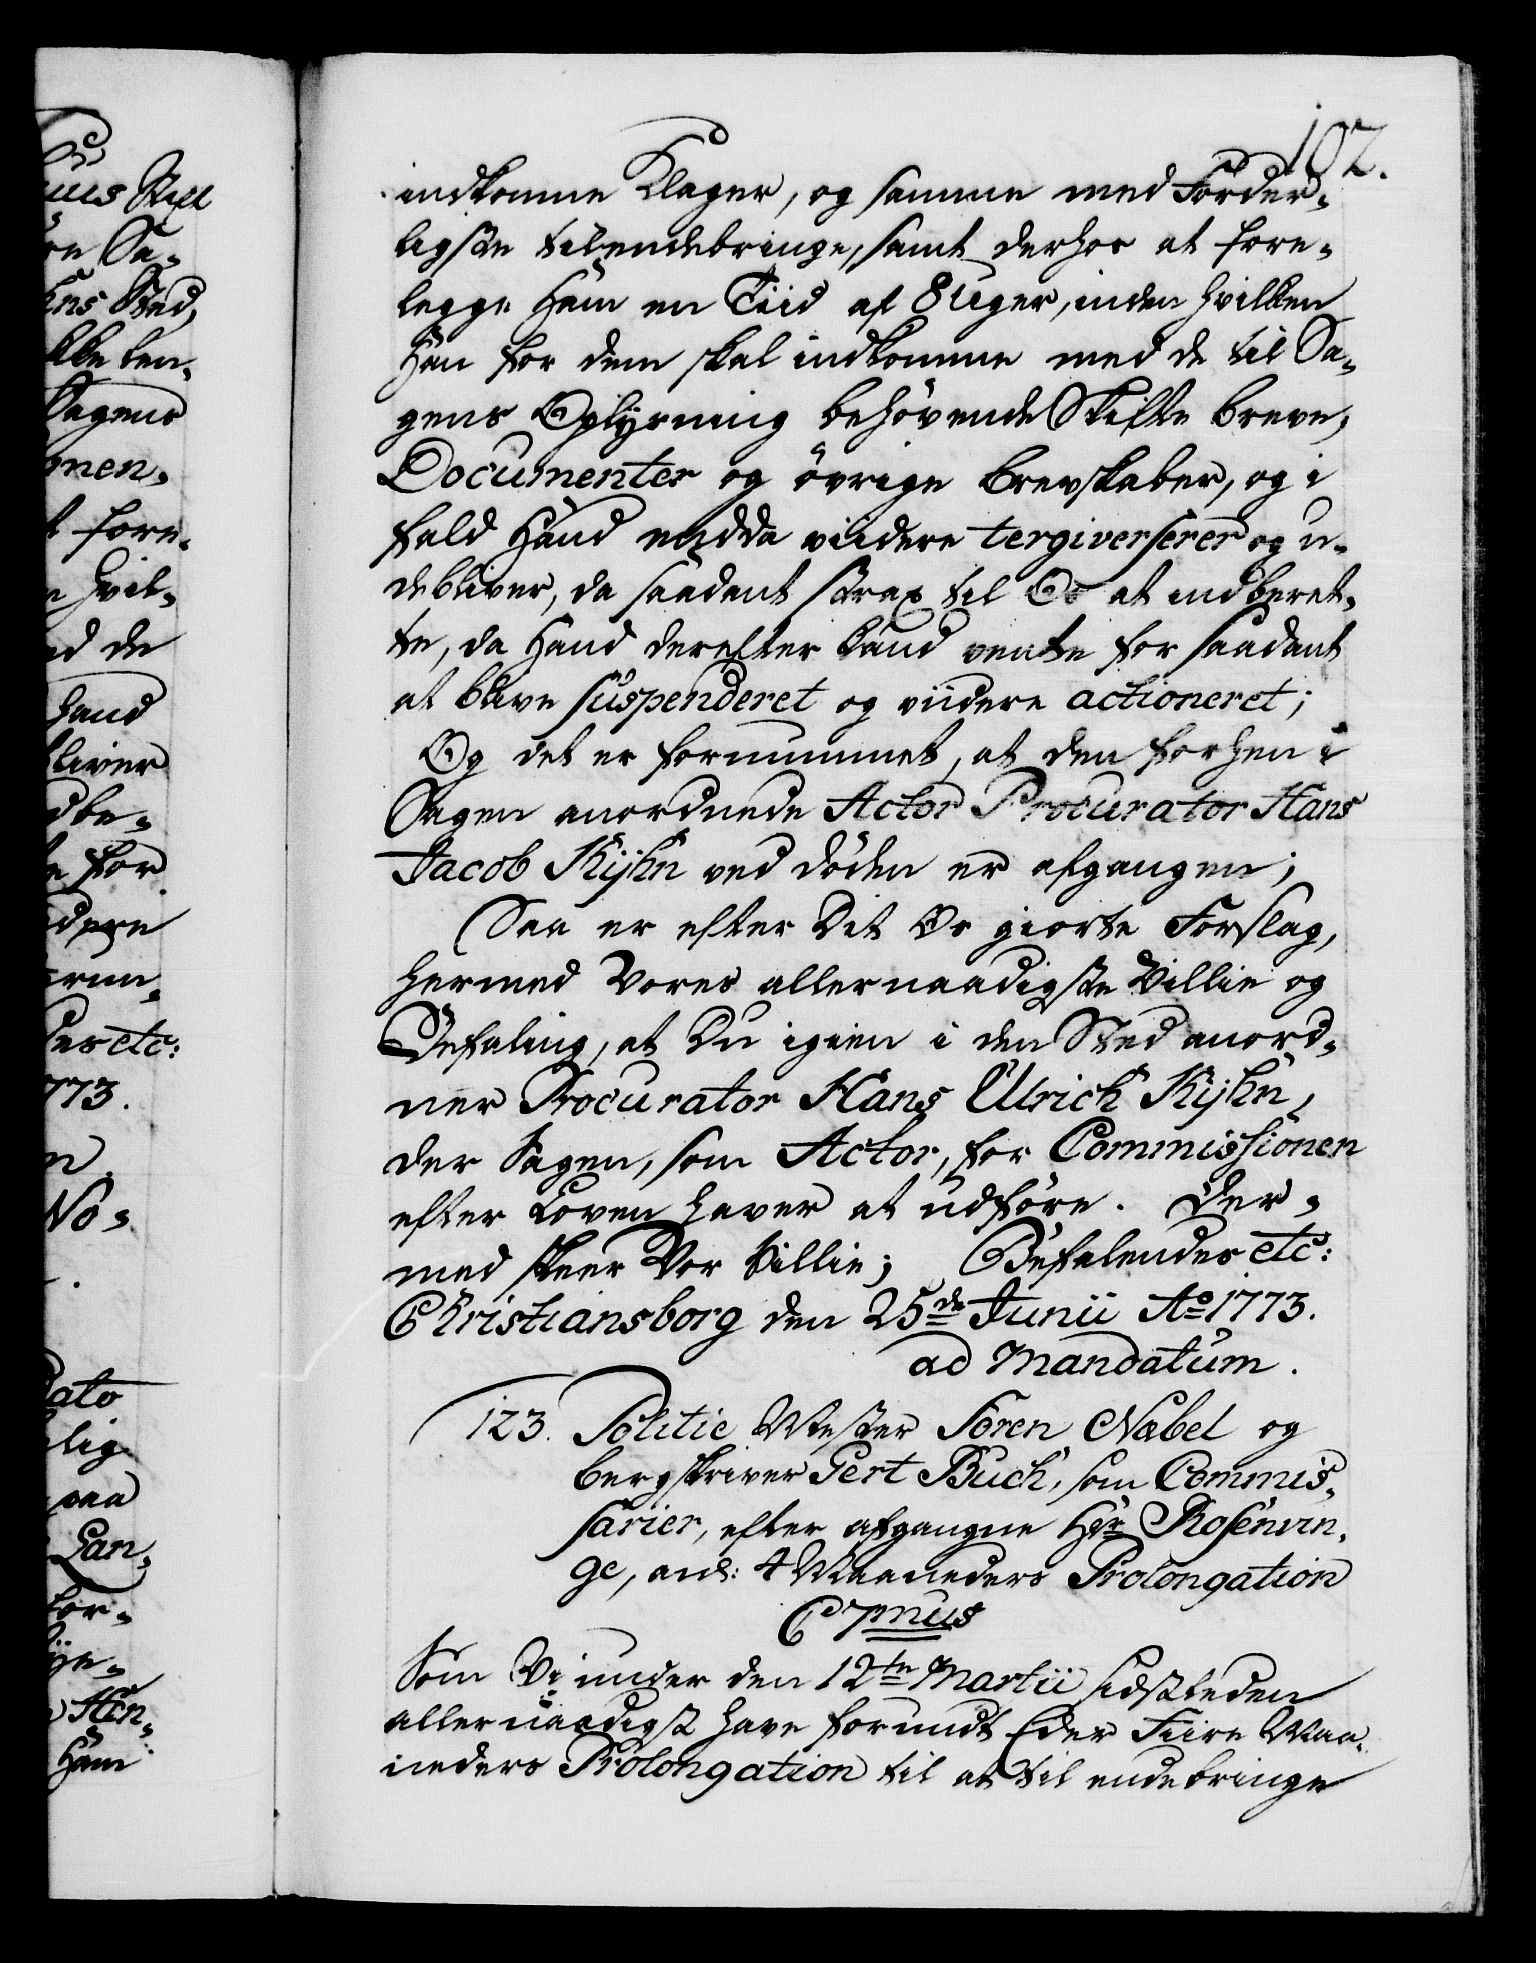 102.
indkomne Klager, og samme med Forder-
ligste tilendebringe, samt derhos at fore-
legge Ham en Tiid af 8 Uger, inden hvilken
Han for dem skal indkomme med de til Sa-
gens Oplysning behövende Skifte breve,
Documenter og övrige brevskaber, og i
fald Hand endda viidere tergiverserer og u-
debliver, da saadant strax til Os at indberet-
te, da Hand derefter kand vente for saadant
at blive suspenderet og viidere actioneret;
Og det er fornummet, at den forhen i
Sagen anordnede Actor Procurator Hans
Jacob Kÿhn ved döden er afgangen;
Saa er efter Dit Os giorte Forslag,
hermed Vores allernaadigste Villie og
Befaling, at Du igien i den Sted anord-
ner Procurator Hans Ulrich Kÿhn,
der Sagen, som Actor, for Commissionen
efter Loven haver at udföre. Der-
med skeer Vor Villie; Befalendes etc:
Christiansborg den 25de Junii Ao 1773.
ad Mandatum.
123. Politie Mester Sören Nabel og
bergskriver Gert Buch, som Commis-
sarier, efter afgangne Hr Rosenvin-
ge, and: 4 Maaneders Prolongation
C 7mus
Som Vi under den 12te Martii sidstleden
allernaadigst have forundt Eder Fiire Maa-
neders Prolongation til at til endebringe
uus Skill
re Sa-
hns Sted,
kke len-
Sagens
men-
t fore-
n hvil-
ed de
hand
bliver
dbe-
te for
dere
run-
des etc:
1773.
n
No-
dato
lig
paa
Lan-
for-
ge-
Hen-
Ham